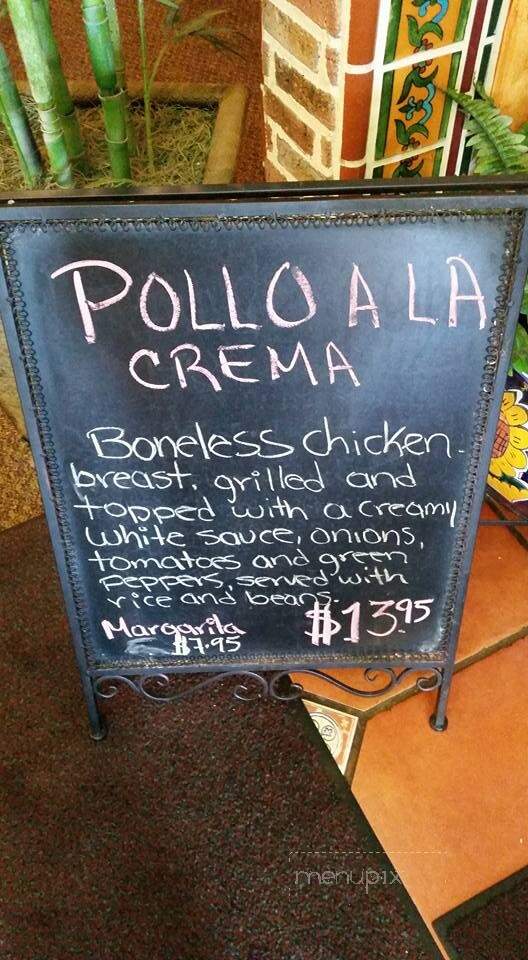 POLLO A LA
CREMA
Boneless chicken
breast, grilled and
topped with a creamy
white sauce, onions,
tomatoes and green
peppers, served with
rice and beans.
Margarita $13.95
$7.95
menupix